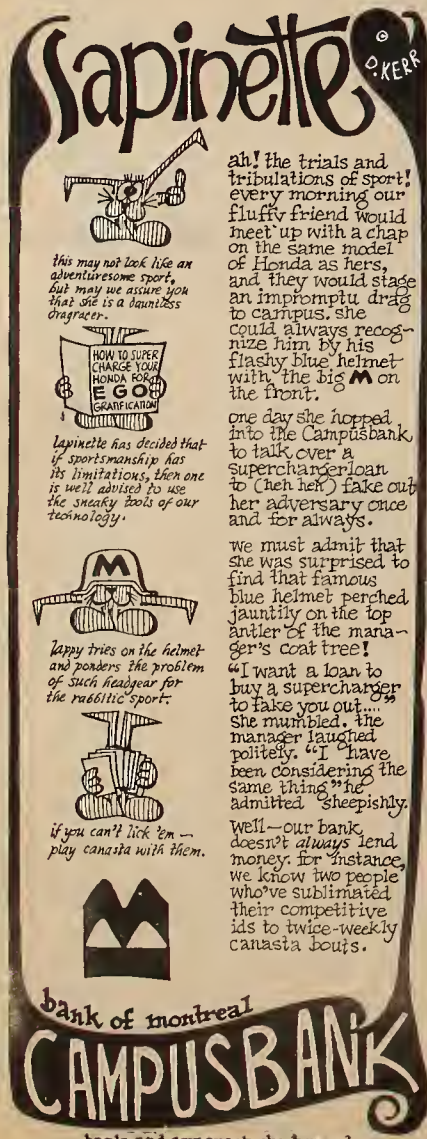 lapinette
© D. KERR
this may not look like an
adventuresome sport,
but may we assure you
that she is a dauntless
dragracer.
HOW TO SUPER
CHARGE YOUR
HONDA FOR
EGO
GRATIFICATION
lapinette has decided that
if sportsmanship has
its limitations, then one
is well advised to use
the sneaky tools of our
technology.
M
lappy tries on the helmet
and ponders the problem
of such headgear for
the rabbitic sport.
if you can't lick 'em —
play canasta with them.
ah! the trials and
tribulations of sport!
every morning our
fluffy friend would
meet up with a chap
on the same model
of Honda as hers,
and they would stage
an impromptu drag
to campus. she
could always recog-
nize him by his
flashy blue helmet
with the big M on
the front.
one day she hopped
into the Campusbank
to talk over a
superchargerloan
to (heh heh) fake out
her adversary once
and for always.
we must admit that
she was surprised to
find that famous
blue helmet perched
jauntily on the top
antler of the mana-
ger's coat tree!
"I want a loan to
buy a supercharger
to fake you out...."
she mumbled. the
manager laughed
politely. "I have
been considering the
same thing" he
admitted sheepishly.
well—our bank
doesn't always lend
money. for instance,
we know two people
who've sublimated
their competitive
ids to twice-weekly
canasta bouts.
bank of montreal
CAMPUSBANK